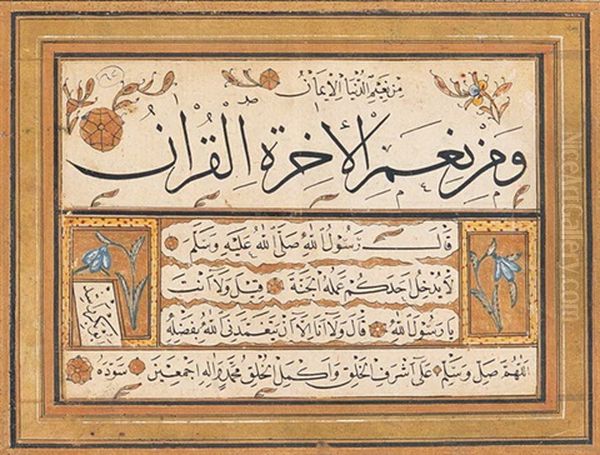 من نعيم الدنيا الإيمان
ومن نعم الأخرة القرآن
قال رسول الله صلى الله عليه وسلم
لا يدخل احدكم عمله الجنة قيل ولا انت
يا رسول الله قال ولا انا الا ان يتغمدني الله بفضله
اللهم صل وسلم على اشرف الخلق واكمل الخلق محمد واله اجمعين سوده
NiceArtGallery.com